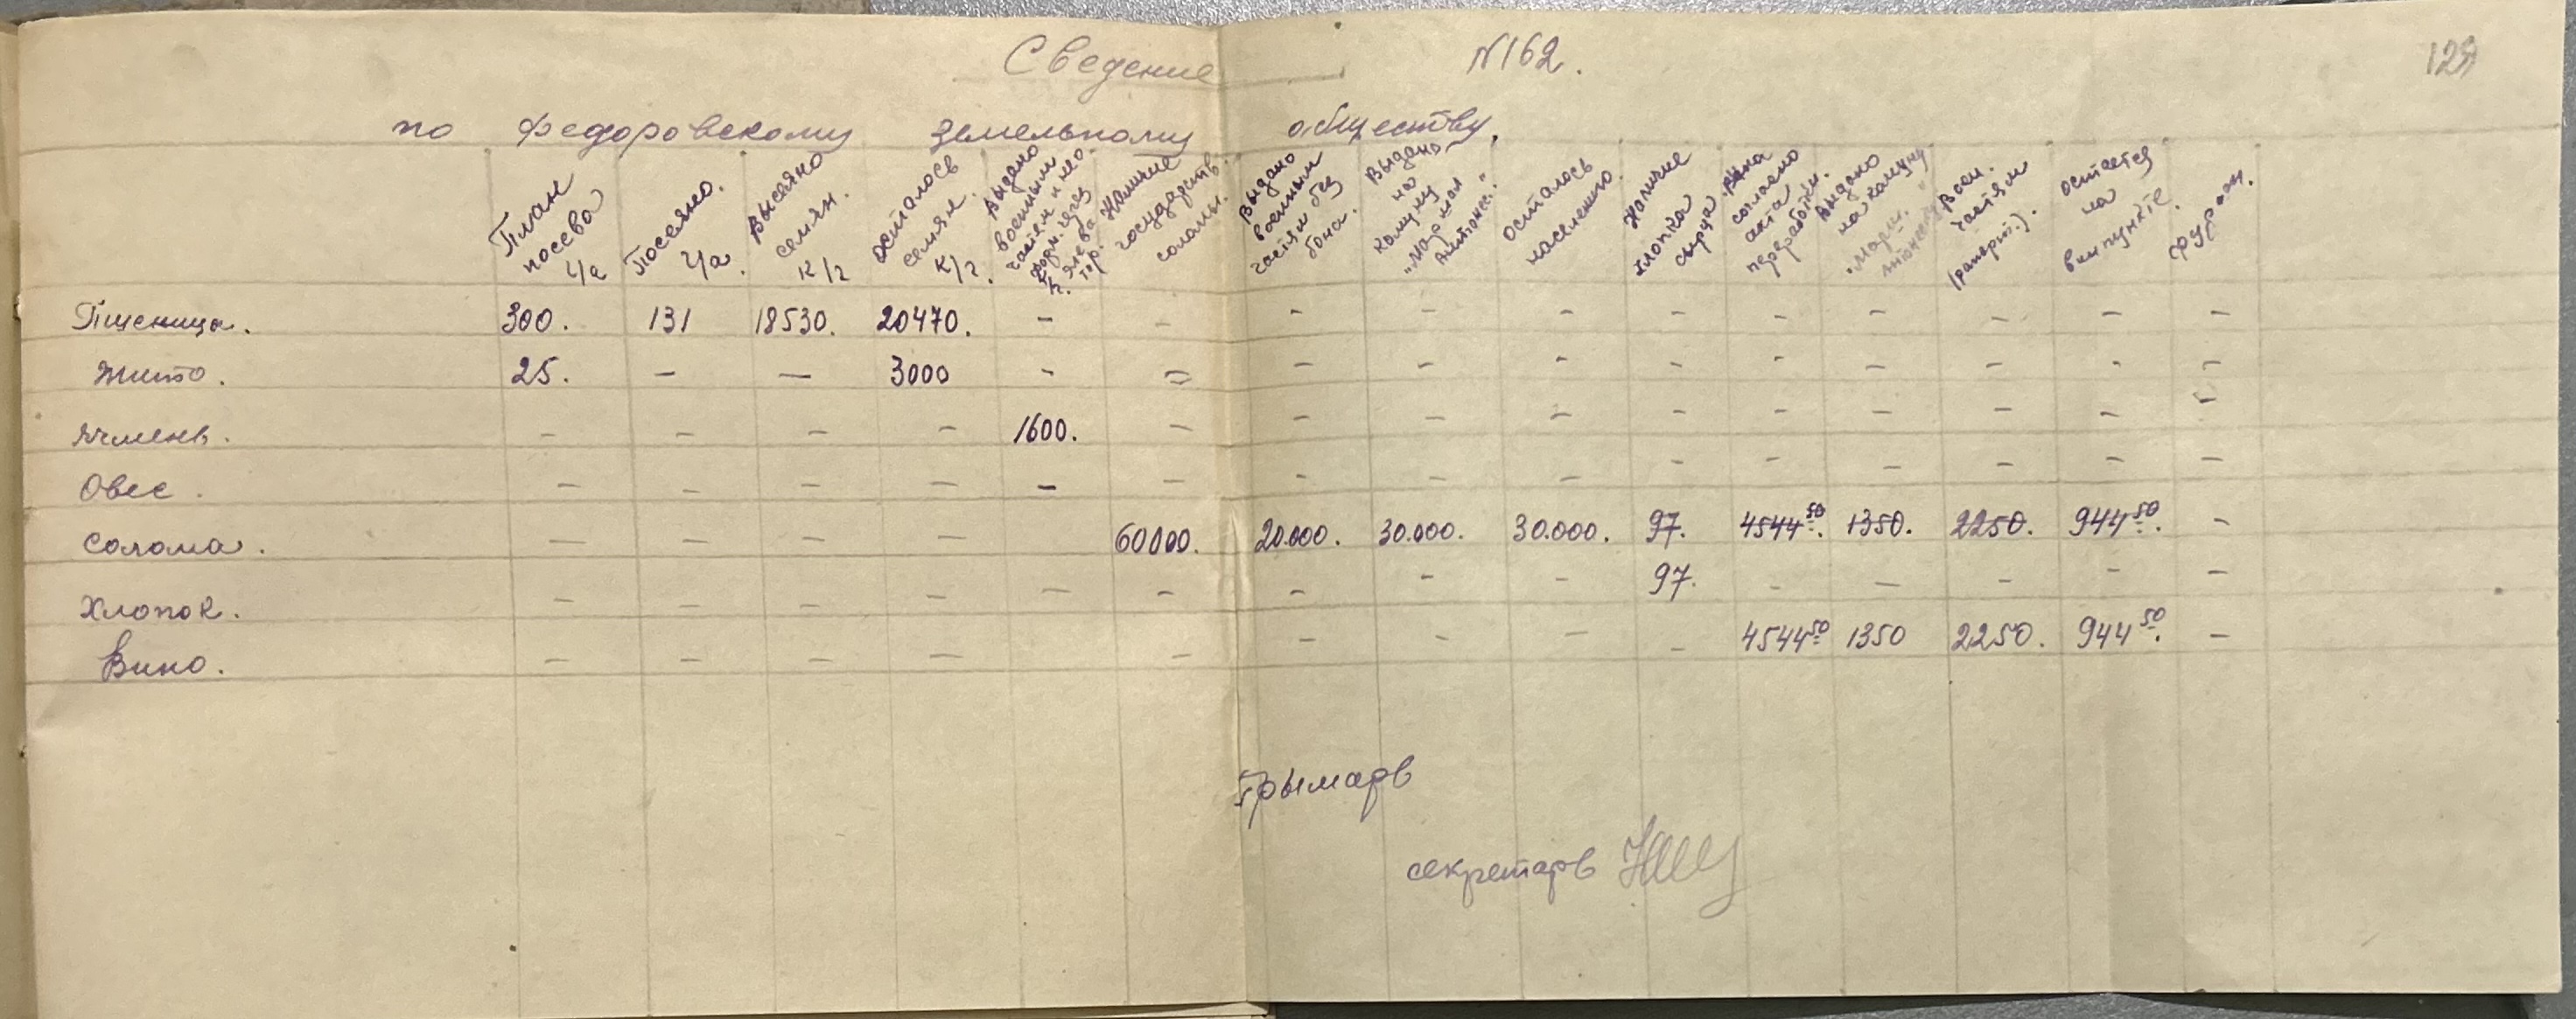 Сведение № 162.
129
по Федоровскому земельному обществу.
План посева г/а
Посеяно. г/а.
Высеяно семян. к/г
Осталось семян. к/г.
Выдано военным частям
Наличие государств. соломы.
Выдано военным частям без бона.
Выдано на комуну "Маршал Антонеск."
Осталось населению.
Наличие хлопка сырца
Вина согласно акта переработки.
Выдано на комуну "Марш. Антонеск"
Воен. частям (рапорт.).
Остается на винпункте.
Фураж.
Пшеница. 300. 131 18530. 20470. - - - - - - - - - - -
Жито. 25. - - 3000 - = - - - - - - - - -
Ячмень. - - - - 1600. - - - - - - - - - -
Овес. - - - - - - - - - - - - - - -
Солома. - - - - 60000. 20.000. 30.000. 30.000. 97. 4544 50. 1350. 2250. 944 50. -
Хлопок. - - - - - - - - - 97. - - - - -
Вино. - - - - - - - - - 4544 50 1350 2250. 944 50. -
Грымарь
секретарь